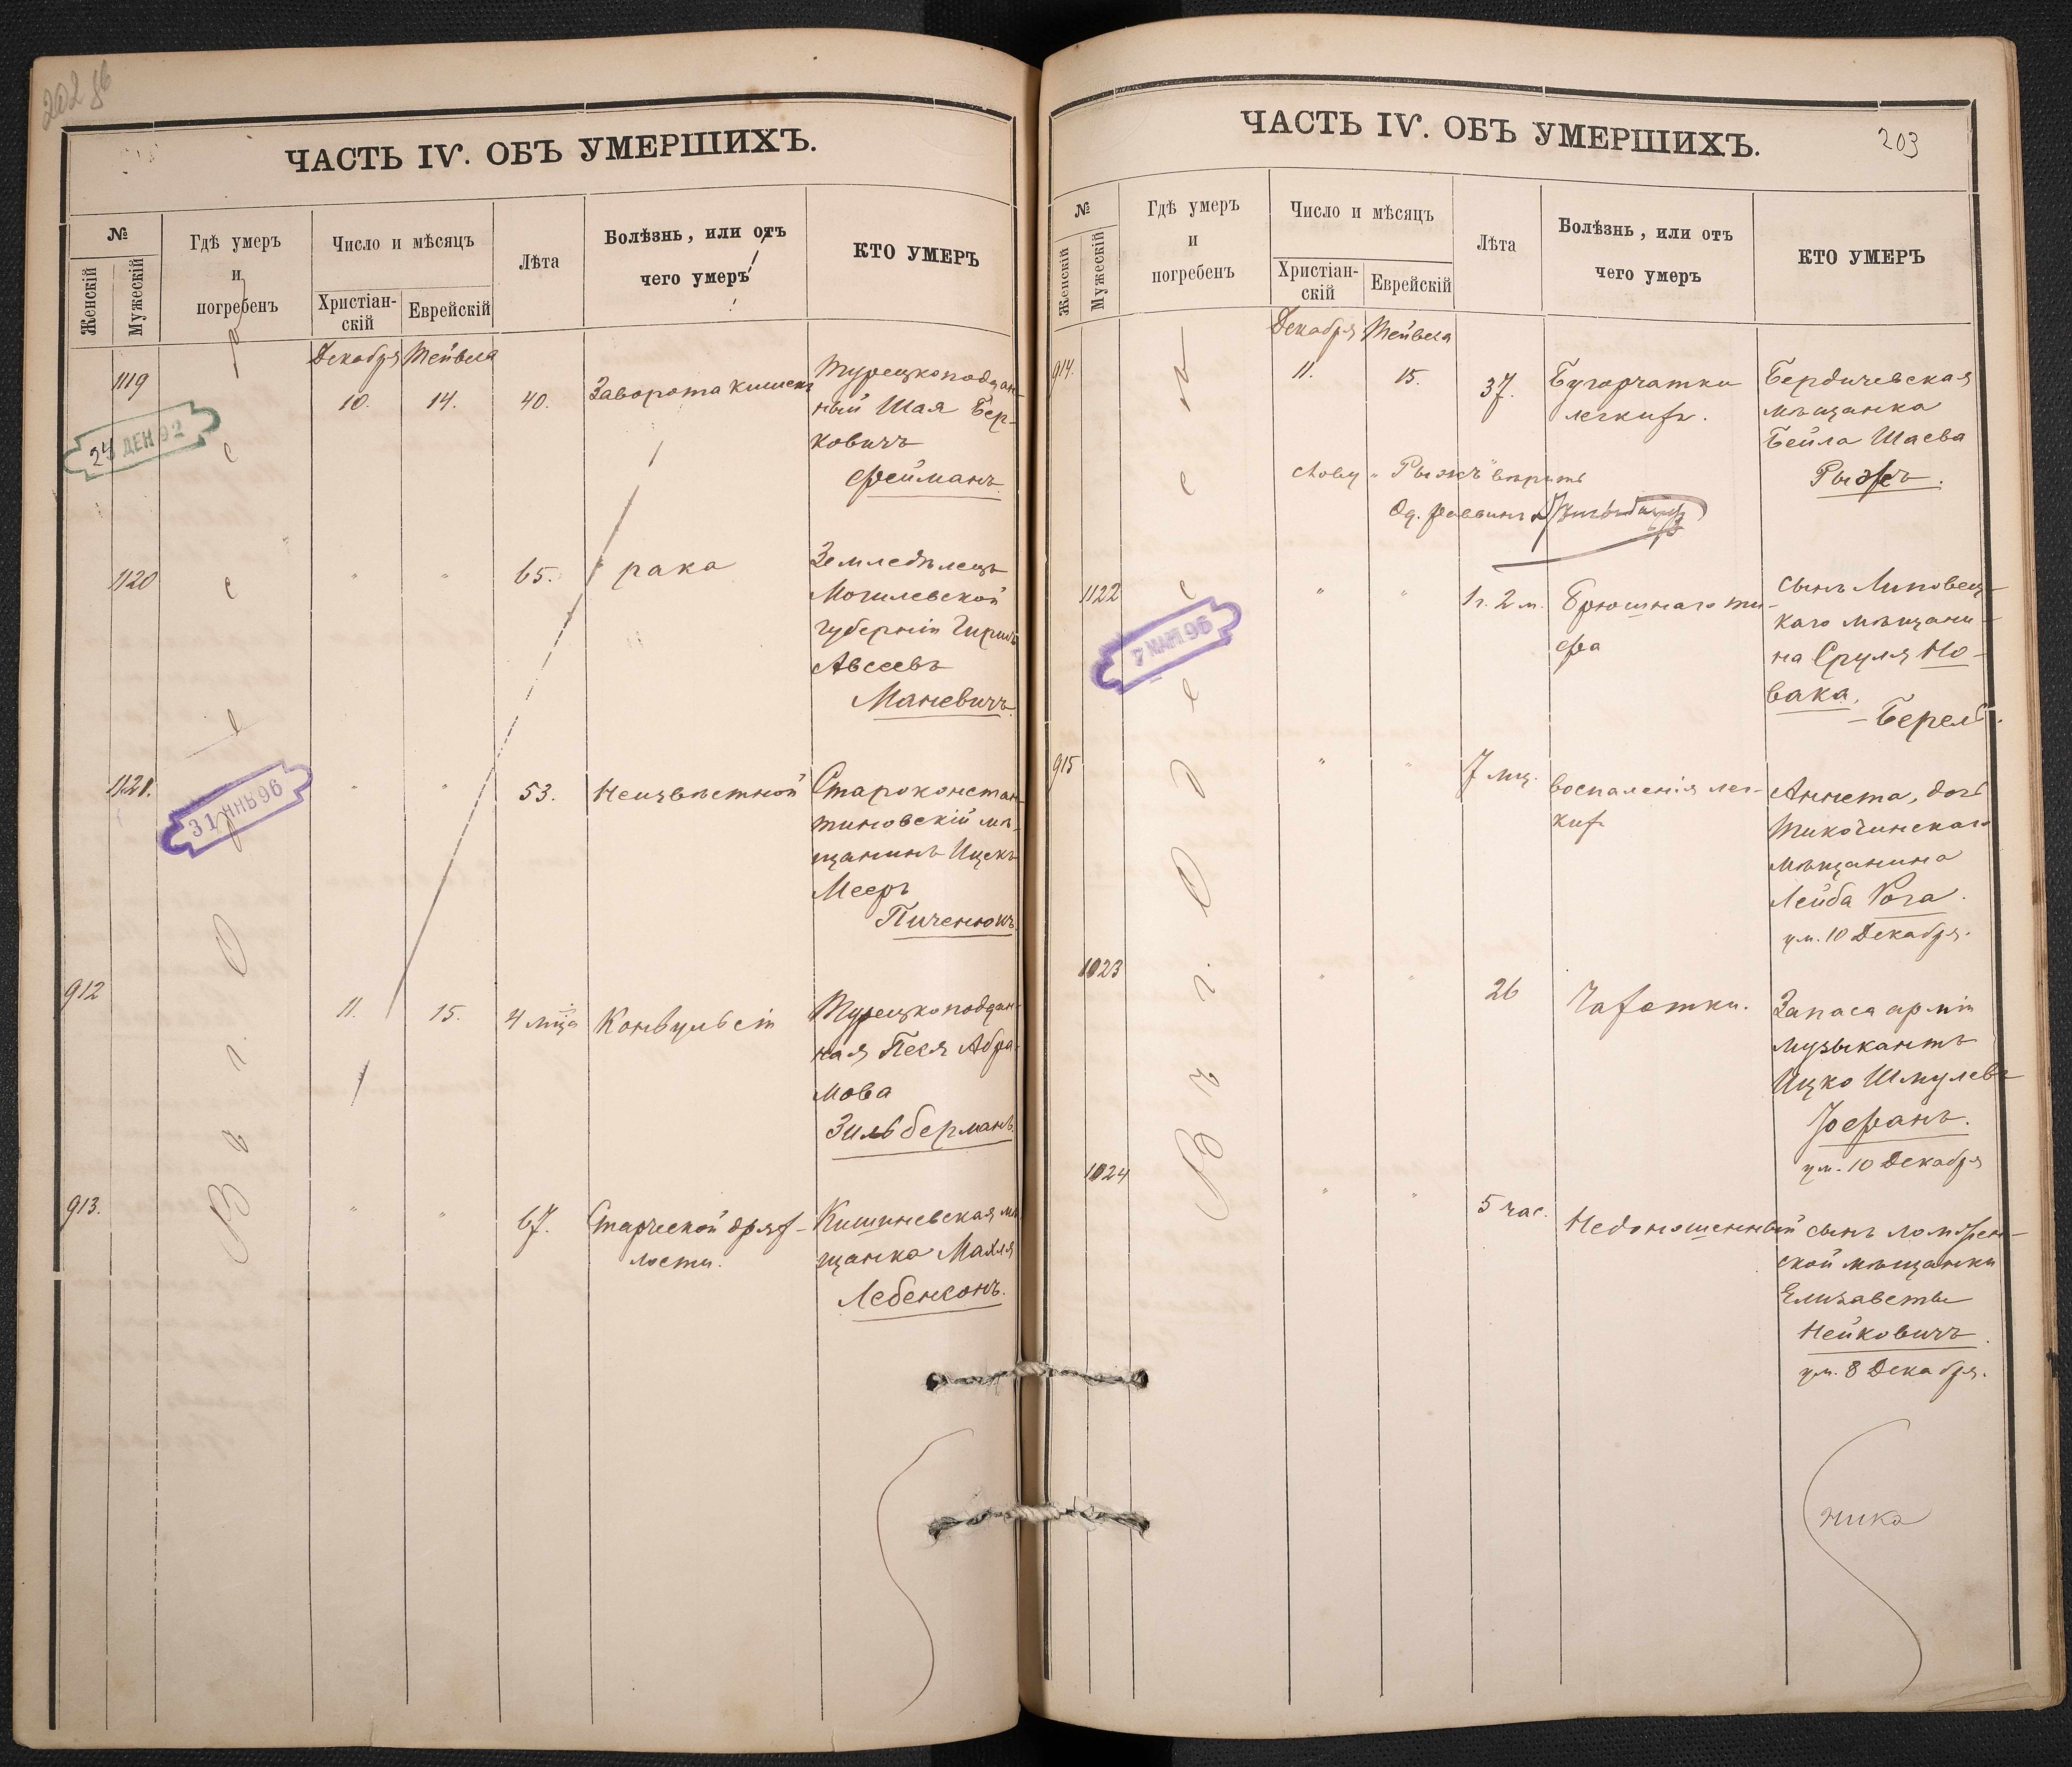 202 об
ЧАСТЬ IV. ОБЪ УМЕРШИХЪ.
№
Женскій
Мужескій
Гдѣ умеръ
и
погребенъ
Число и мѣсяцъ
Христіан-
скій
Еврейскій
Лѣта
Болѣзнь, или отъ
чего умеръ
КТО УМЕРЪ
Декабря Тейвеса
1119
10. 14. 40. Заворота кишекъ
Турецкоподдан-
ный Шая Бер-
ковичъ
Фейманъ.
24 ДЕК 92
1120 " " 65. рака
Земледѣлецъ
Могилевской
губерніи Гиршъ
Авсеевъ
Маневичъ.
1121. " " 53. Неизвѣстной
Староконстан-
тиновскій мѣ-
щанинъ Ицекъ
Мееръ
Пиченюкъ.
31 ЯНВ 96
912 11. 15. 4 мца Конвульсіи
Турецкоподдан-
ная Песя Абра-
мова
Зильберманъ.
913. " " 67. Старческой дрях-
лости.
Кишиневская мѣ-
щанка Махля
Лебенсонъ.
ЧАСТЬ IV. ОБЪ УМЕРШИХЪ.
203
№
Женскій
Мужескій
Гдѣ умеръ
и
погребенъ
Число и мѣсяцъ
Христіан-
скій
Еврейскій
Лѣта
Болѣзнь, или отъ
чего умеръ
КТО УМЕРЪ
Декабря Тейвеса
914. 11. 15. 37. Бугорчатки
легкихъ.
Бердичевская
мѣщанка
Бейла Шаева
Рыжъ.
слову "Рыжъ" вѣрить
Од. раввинъ
1122 " " 1 г. 2 м. Брюшнаго ти-
фа
сынъ Липовец-
каго мѣщани-
на Сруля Но-
вака,
– Берель.
7 МАР 96
915 " " 7 мц. воспаленія лег-
кихъ
Аннета, дочь
Тикочинскаго
мѣщанина
Лейба Рога.
ум. 10 Декабря.
1023 " " 26 Чахотки.
Запаса арміи
музыкантъ
Ицко Шмулевъ
Юфанъ.
ум. 10 Декабря
1024 " " 5 час. Недоношенный
сынъ
ской мѣщанки
Елизаветы
Нейковичъ.
ум. 8 Декабря.